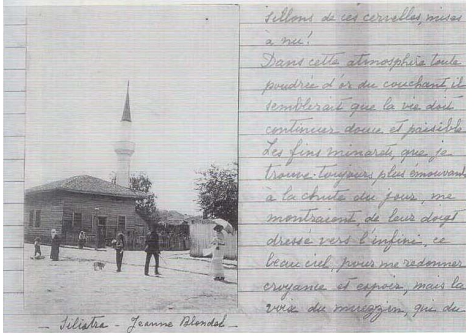 sillons de ces cervelles, mises
à nu!
Dans cette atmosphère toute
poudrée d'or du couchant, il
semblerait que la vie doit
continuer douce et paisible
Les fins minarets, que je
trouve toujours plus émouvants
à la chute du jour, me
montraient, de leur doigt
dressé vers l'infini, ce
beau ciel, pour me redonner
croyance et espoir, mais la
voix du muezzin, que du
_ Silistra - Jeanne Blondel _